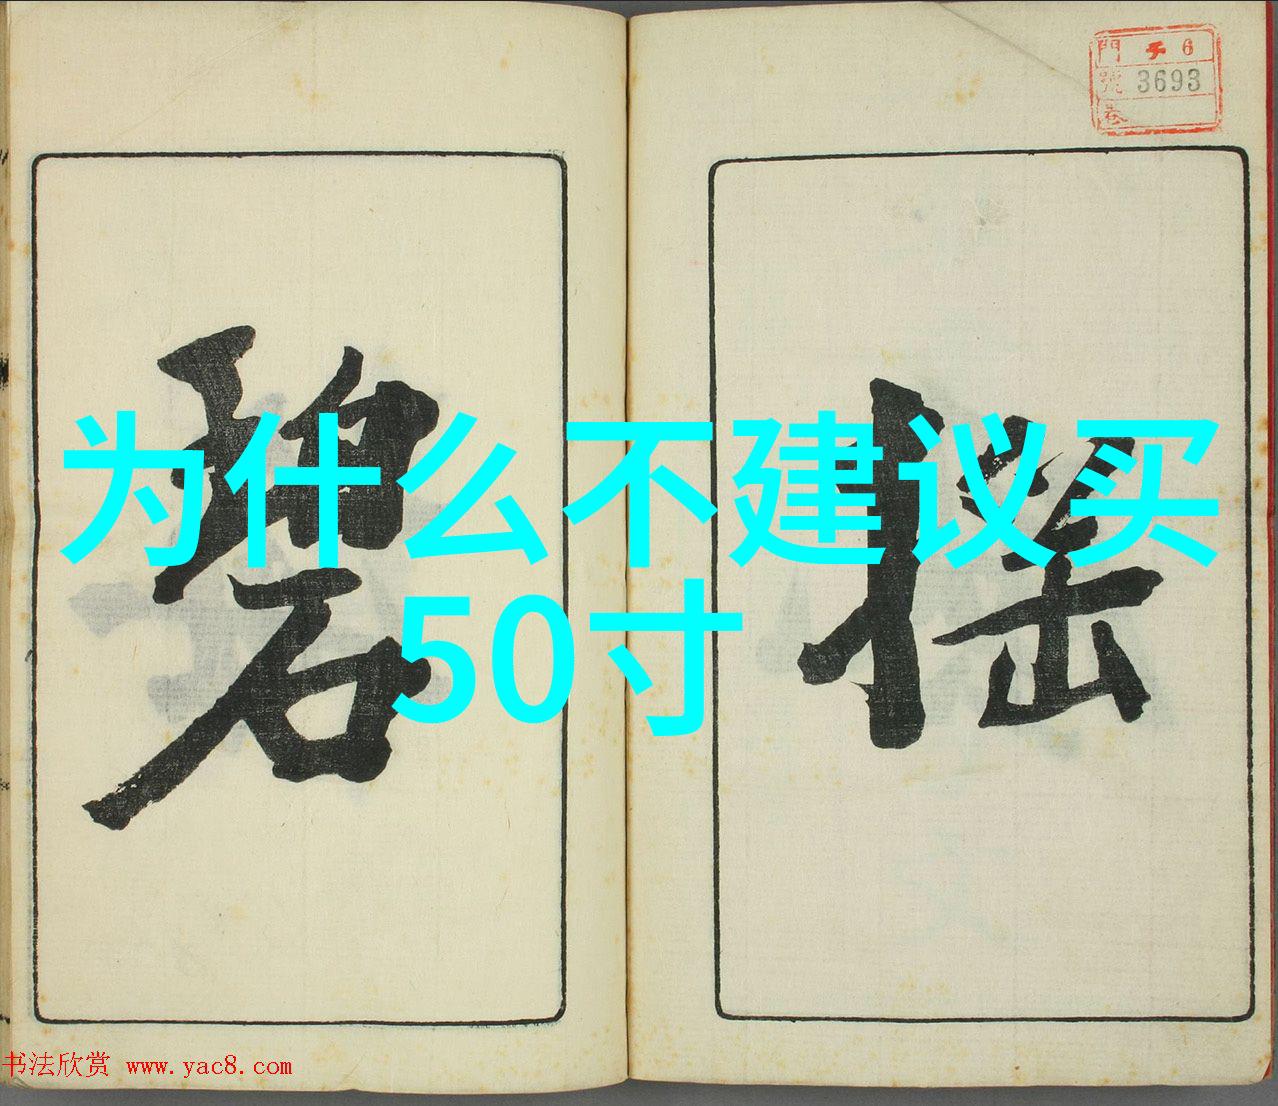 門 チ 6
號 3693
卷
為什么不建议买
50寸
碧
搖
书法欣赏 www.yac8.com